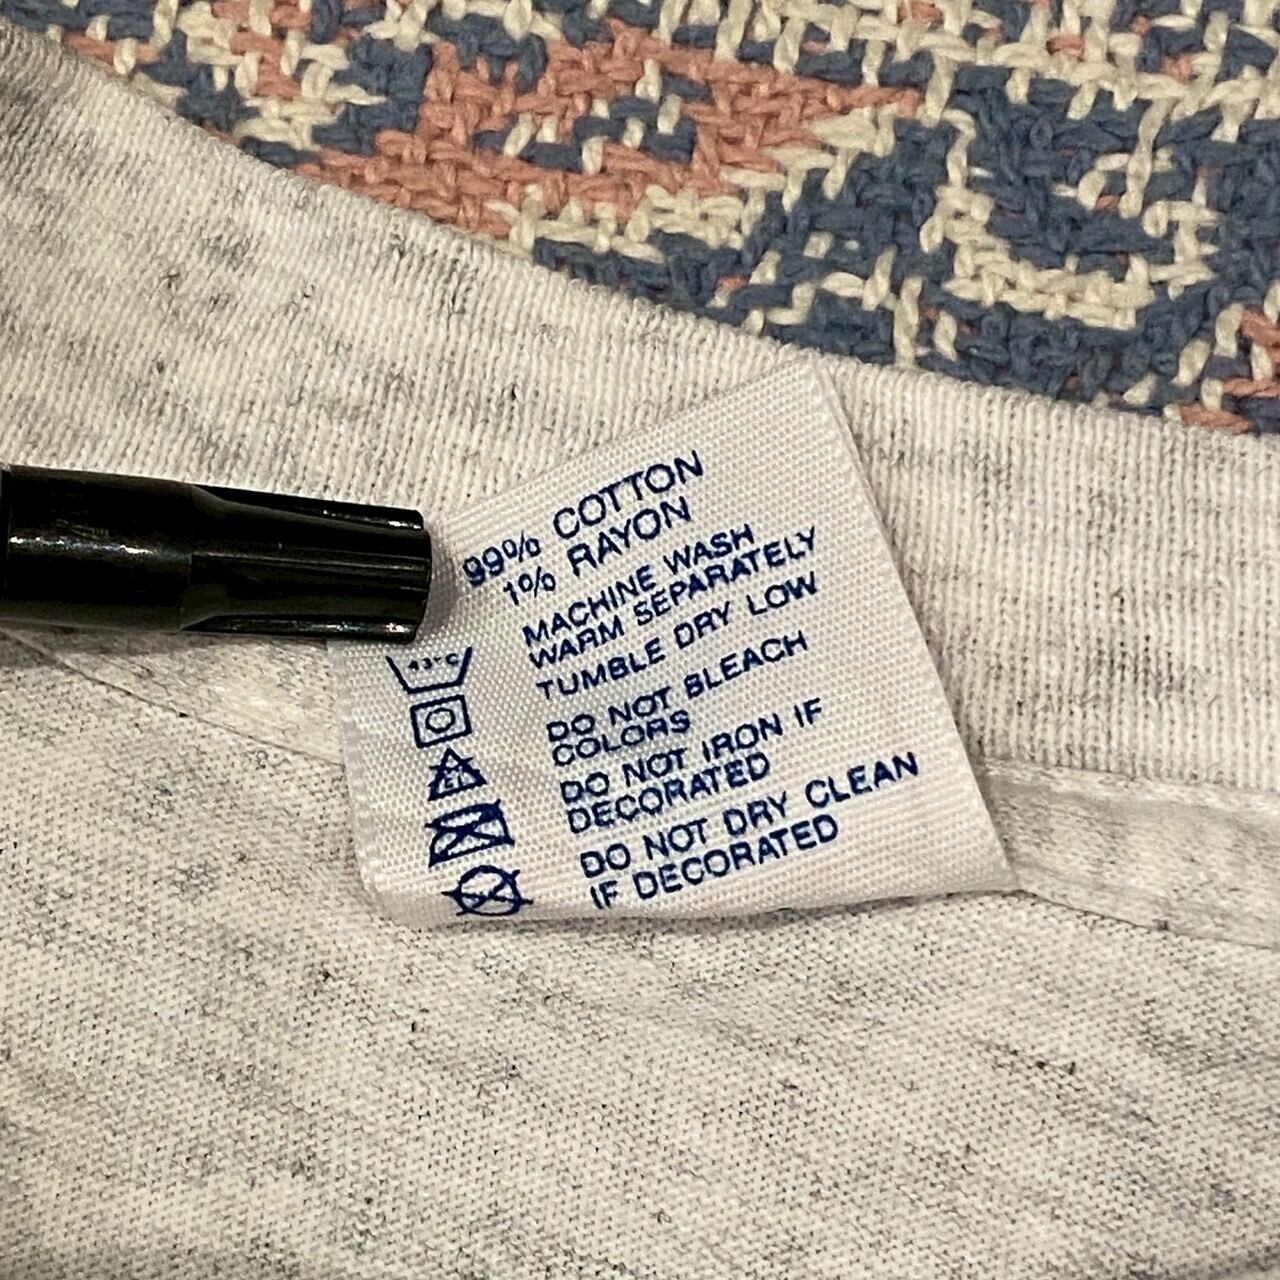 99% COTTON
1% RAYON
MACHINE WASH
WARM SEPARATELY
TUMBLE DRY LOW
DO NOT BLEACH
COLORS
DO NOT IRON IF
DECORATED
DO NOT DRY CLEAN
IF DECORATED
43°C